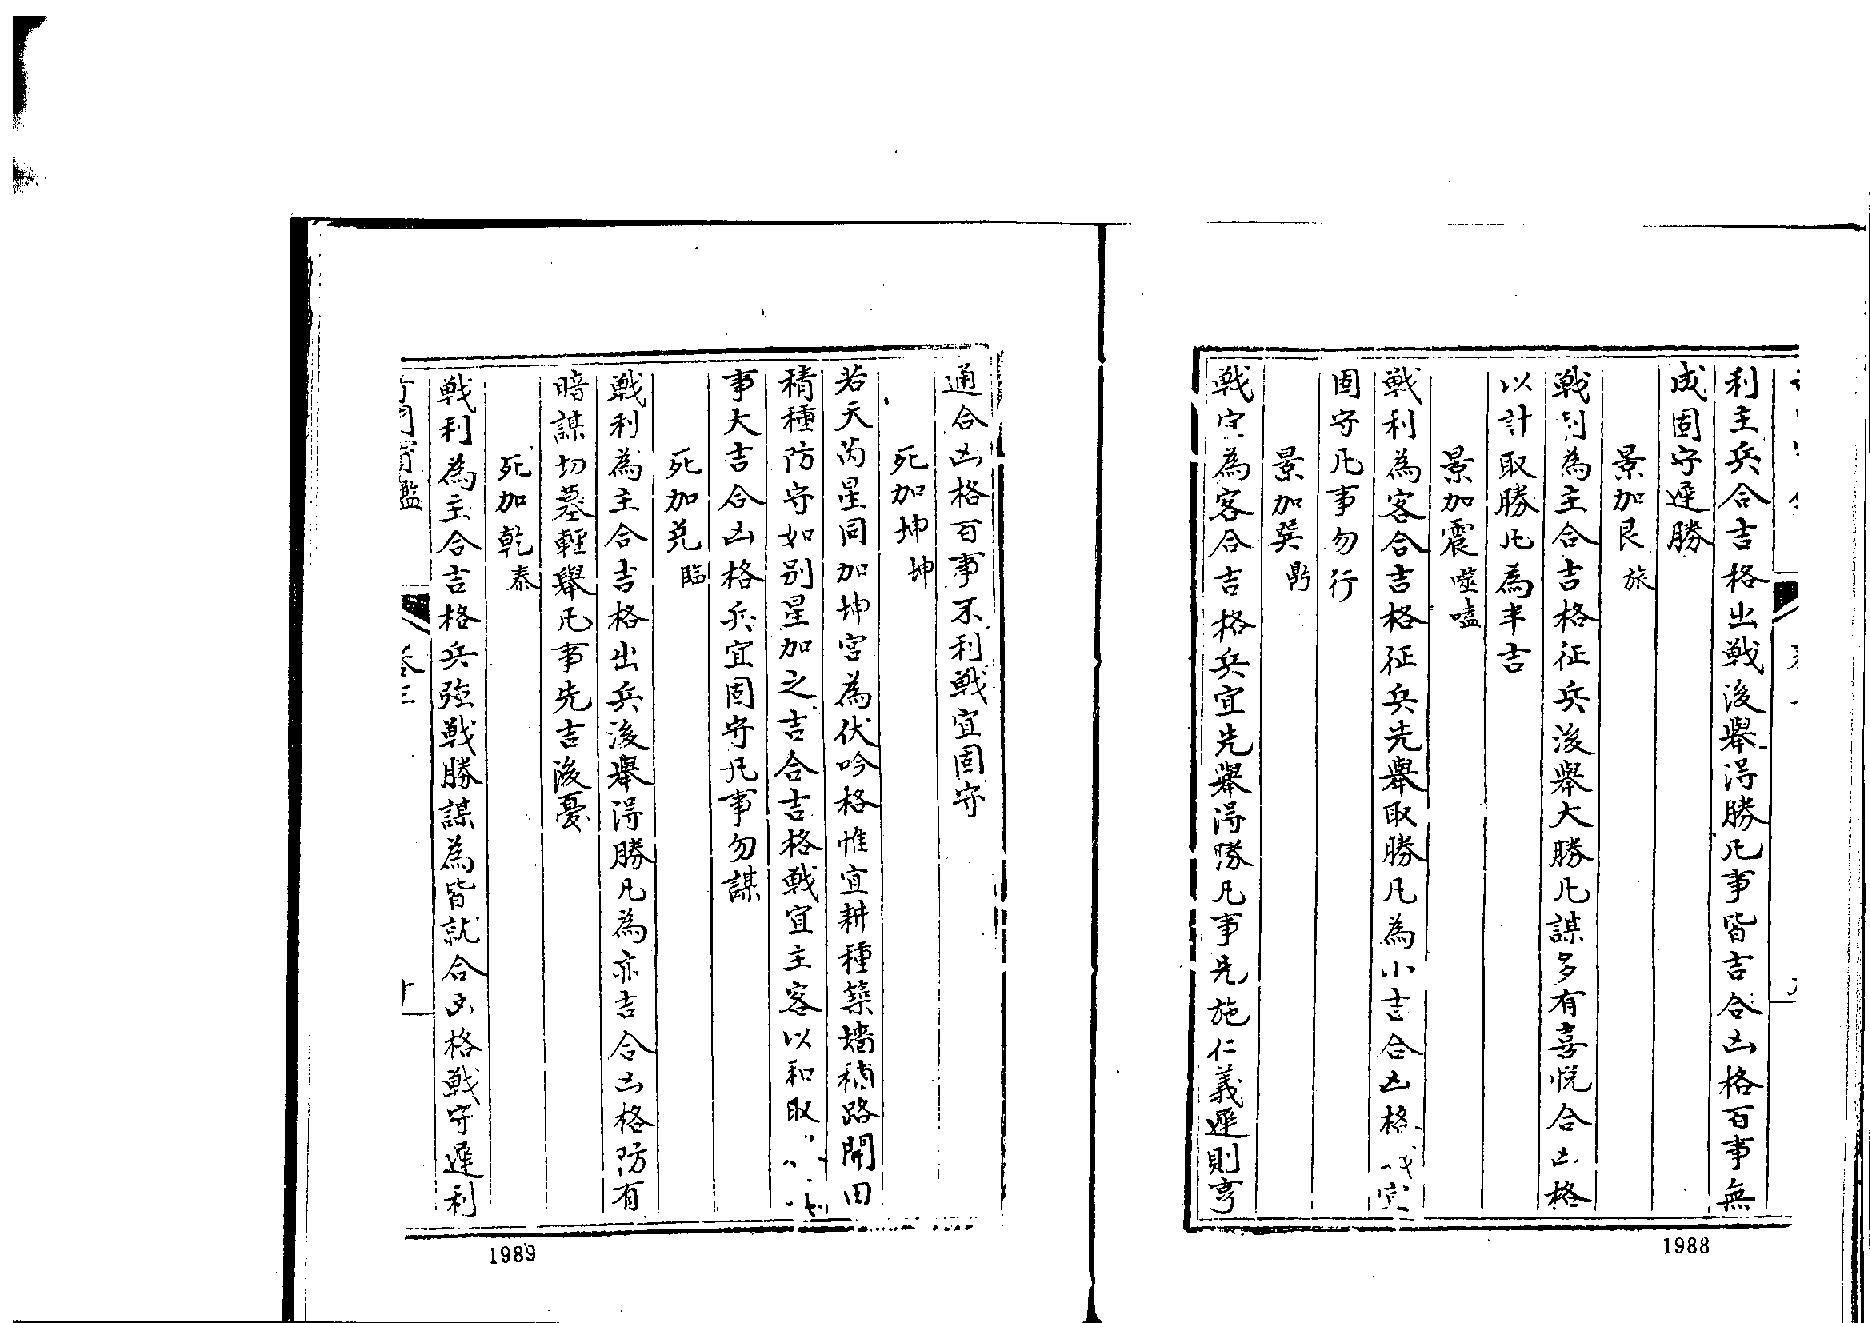 利主兵合吉格出戰後舉得勝凡事皆吉合凶格百事無
成固守遲勝
景加艮 旅
戰利為主合吉格征兵後舉大勝凡謀多有喜悅合凶格
以計取勝凡為半吉
景加震 噬嗑
戰利為客合吉格征兵先舉取勝凡為小吉合凶格戰宜
固守凡事勿行
景加巽 鼎
戰守為客合吉格兵宜先舉得勝凡事先施仁義遲則亨
1988
通合凶格百事不利戰宜固守
死加坤 坤
若天芮星同加坤宮為伏吟格惟宜耕種築墻積路開田
積種防守如別星加之吉合吉格戰宜主客以和取
事大吉合凶格兵宜固守凡事勿謀
死加兌 臨
戰利為主合吉格出兵後舉得勝凡為亦吉合凶格防有
暗謀切墓輕舉凡事先吉後憂
死加乾 泰
戰利為主合吉格兵強戰勝謀為皆就合凶格戰守遲利
卷三
1989